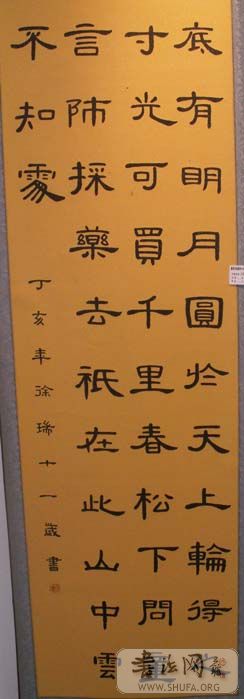 底有明月圓於天上輪得
寸光可買千里春松下問
言師採藥去祇在此山中雲
不知處
丁亥年徐瑞十一歲書
书法网
WWW.SHUFA.ORG